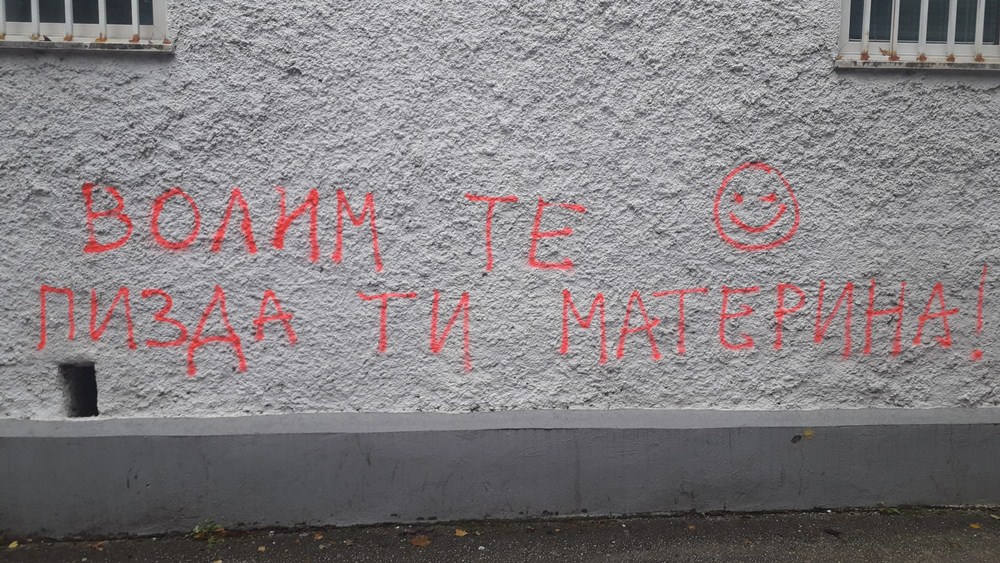 ВОЛИМ ТЕ
ПИЗДА ТИ МАТЕРИНА!